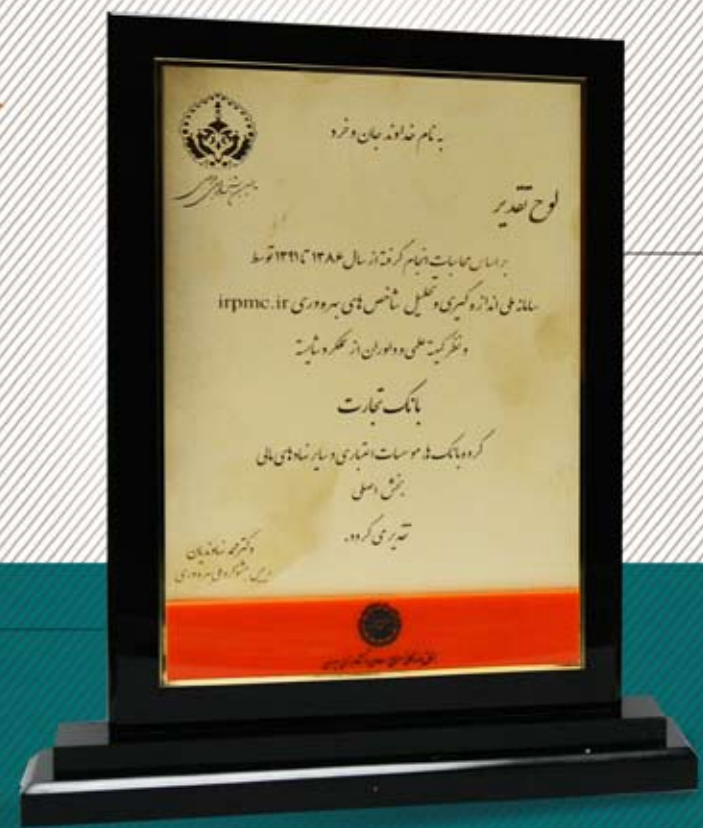 به نام خداوند جان و خرد
لوح تقدیر
براساس محاسبات انجام گرفته از سال ۱۳۸۶ تا ۱۳۹۱ توسط
سامانه ملی اندازه گیری و تحلیل شاخص های بهره وری irpmc.ir
و نظر کمیته علمی و داوران از عملکرد شایسته
بانک تجارت
گروه بانک ها، موسسات اعتباری و سایر نهادهای مالی
بخش اصلی
تقدیر می گردد.
دکتر محمد نهاوندیان
رییس جشنواره ملی بهره وری